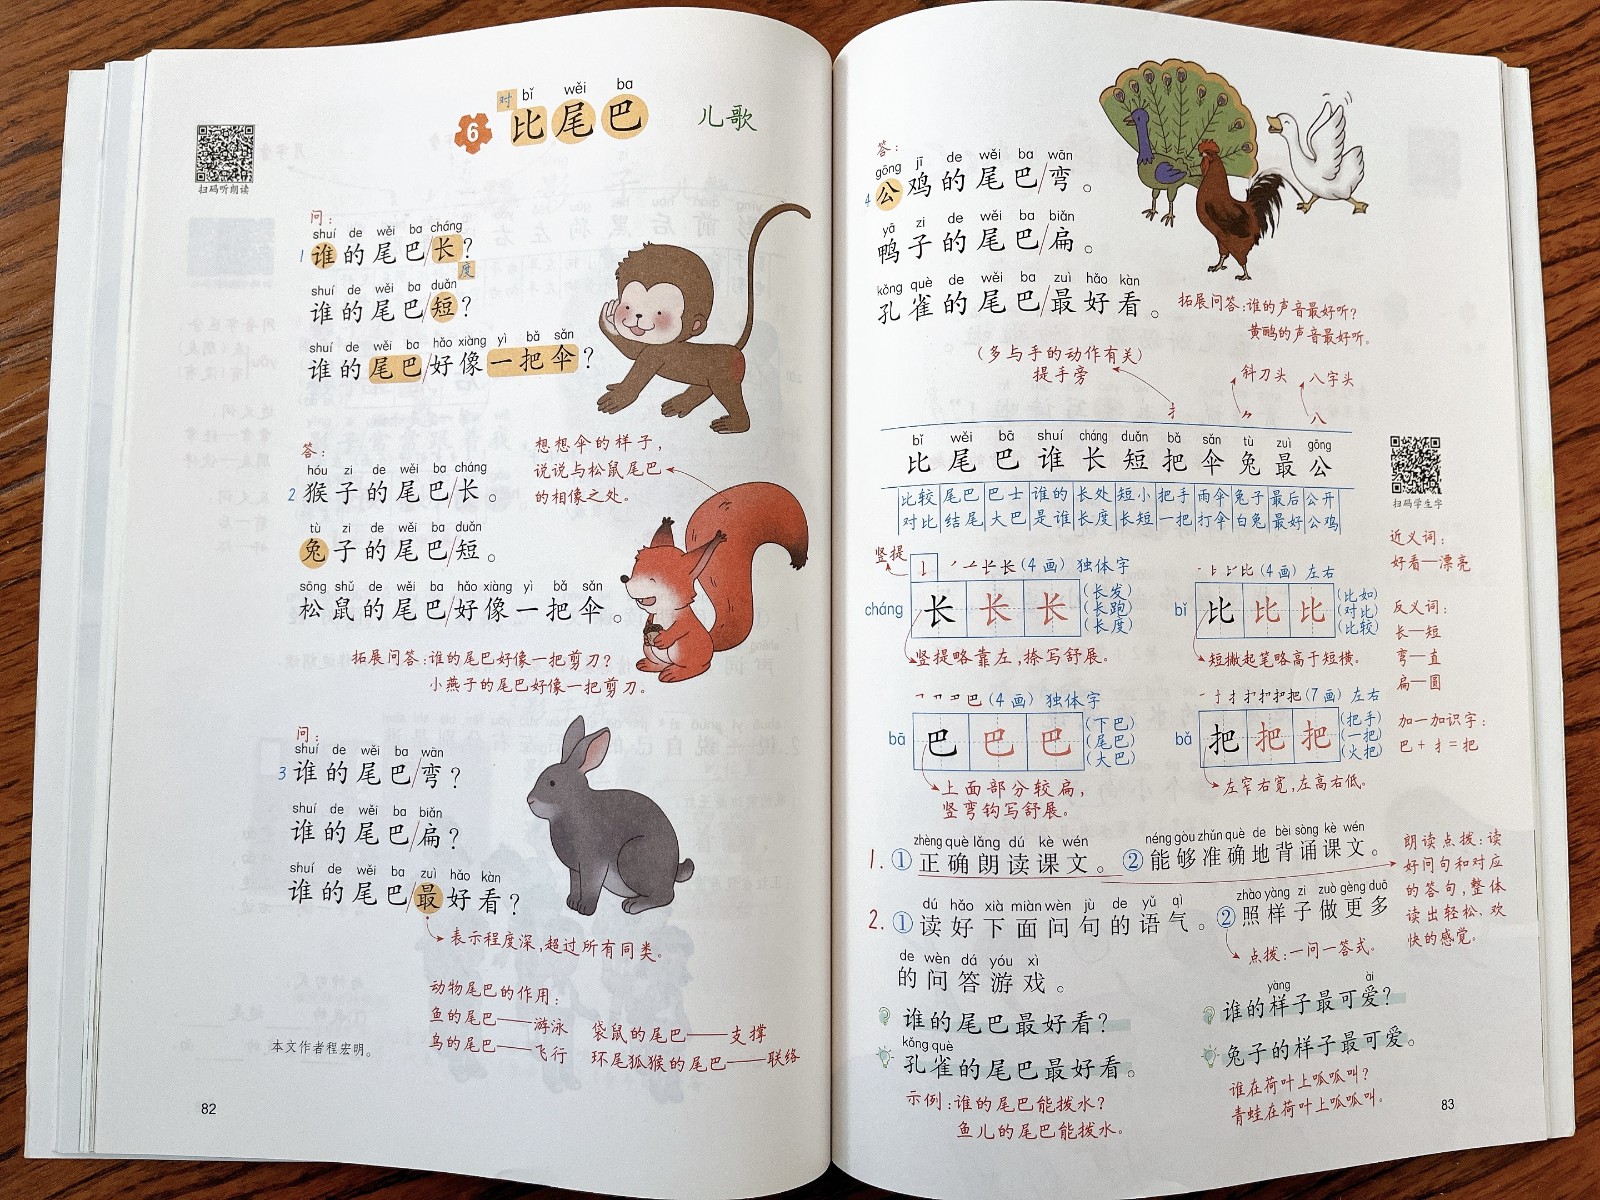 对
bǐ wěi ba
6 比尾巴 儿歌
扫码听朗读
问：
shuí de wěi ba cháng
1 谁的尾巴/长？
度
shuí de wěi ba duǎn
谁的尾巴/短？
shuí de wěi ba hǎo xiàng yì bǎ sǎn
谁的尾巴/好像一把伞？
答：
hóu zi de wěi ba cháng
2 猴子的尾巴/长。
tù zi de wěi ba duǎn
兔子的尾巴/短。
sōng shǔ de wěi ba hǎo xiàng yì bǎ sǎn
松鼠的尾巴/好像一把伞。
想想伞的样子，
说说与松鼠尾巴
的相像之处。
拓展问答：谁的尾巴好像一把剪刀？
小燕子的尾巴好像一把剪刀。
问：
shuí de wěi ba wān
3 谁的尾巴/弯？
shuí de wěi ba biǎn
谁的尾巴/扁？
shuí de wěi ba zuì hǎo kàn
谁的尾巴/最好看？
表示程度深，超过所有同类。
动物尾巴的作用：
鱼的尾巴——游泳
鸟的尾巴——飞行
袋鼠的尾巴——支撑
环尾狐猴的尾巴——联络
本文作者程宏明。
82
答：
gōng jī de wěi ba wān
4 公鸡的尾巴/弯。
yā zi de wěi ba biǎn
鸭子的尾巴/扁。
kǒng què de wěi ba zuì hǎo kàn
孔雀的尾巴/最好看。
拓展问答：谁的声音最好听？
黄鹂的声音最好听。
（多与手的动作有关）
提手旁
斜刀头
八字头
扌 ⺈ 八
bǐ wěi bā shuí cháng duǎn bǎ sǎn tù zuì gōng
比 尾 巴 谁 长 短 把 伞 兔 最 公
比较 尾巴 巴士 谁的 长处 短小 把手 雨伞 兔子 最后 公开
对比 结尾 大巴 是谁 长度 长短 一把 打伞 白兔 最好 公鸡
扫码学生字
竖提
(4画) 独体字
cháng 长 长 长
(长发)
(长跑)
(长度)
竖提略靠左，捺写舒展。
(4画) 左右
bǐ 比 比 比
(比如)
(对比)
(比较)
短撇起笔略高于短横。
(4画) 独体字
bā 巴 巴 巴
(下巴)
(尾巴)
(大巴)
上面部分较扁，
竖弯钩写舒展。
(7画) 左右
bǎ 把 把 把
(把手)
(一把)
(火把)
左窄右宽，左高右低。
近义词：
好看—漂亮
反义词：
长—短
弯—直
扁—圆
加一加识字：
巴+扌=把
zhèng què lǎng dú kè wén néng gòu zhǔn què de bèi sòng kè wén
1. ①正确朗读课文。②能够准确地背诵课文。
dú hǎo xià miàn wèn jù de yǔ qì zhào yàng zi zuò gèng duō
2. ①读好下面问句的语气。②照样子做更多
de wèn dá yóu xì
的问答游戏。
点拨：一问一答式。
朗读点拨：读
好问句和对应
的答句，整体
读出轻松、欢
快的感觉。
谁的尾巴最好看？
kǒng què
孔雀的尾巴最好看。
yàng ài
谁的样子最可爱？
兔子的样子最可爱。
示例：谁的尾巴能拨水？
鱼儿的尾巴能拨水。
谁在荷叶上呱呱叫？
青蛙在荷叶上呱呱叫。
83